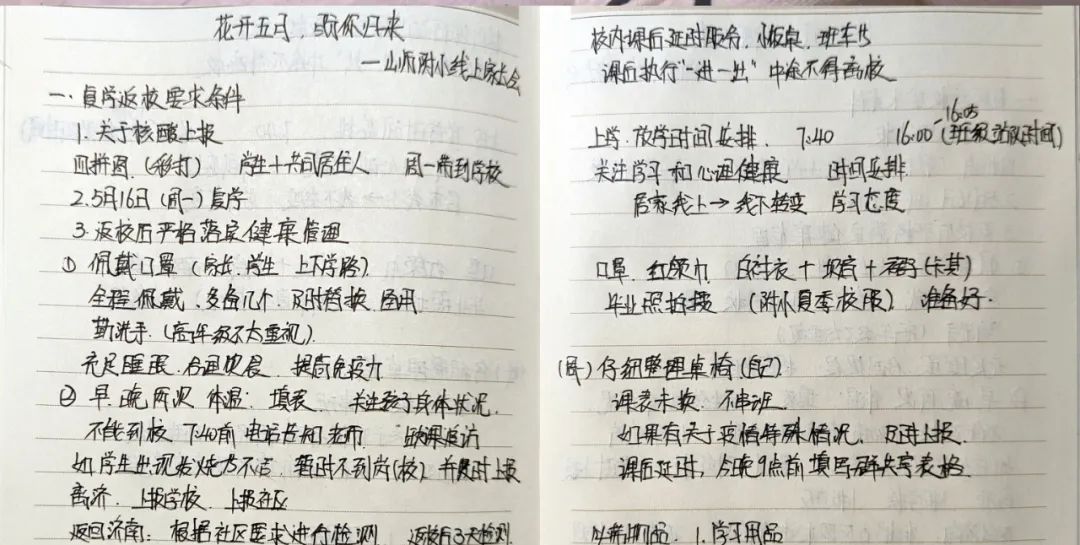 花开五月，盼你归来
——山师附小线上家长会
一、复学返校要求条件
1.关于核酸上报
四拼图（彩打） 学生+共同居住人 周一带到学校
2.5月16日（周一）复学
3.返校后严格落实健康管理
① 佩戴口罩（家长、学生 上下学路）
全程佩戴，多备几个 及时替换 备用
勤洗手.（高年级不太重视）
充足睡眠 合理饮食 提高免疫力
② 早、晚两次 体温：填表 关注孩子身体状况.
不能到校 7:40前 电话告知老师 缺课追访
如学生出现发烧方不适 暂时不到岗(校)，并及时上报
离济. 上报学校 上报社区
返回济南：根据社区要求进行检测 返校后3天检测
校内课后延时服务、小饭桌、班车
课后执行"一进一出" 中途不得离校
上学、放学时间安排. 7:40 16:00-16:05（班级站队时间）
关注学习和心理健康 时间安排
居家线上→线下转变 学习态度
口罩 红领巾 白衬衣+ +裙子(卡其)
毕业照拍摄 （附小夏季校服） 准备好.
（周）仔细整理桌椅（自己）
课表未换 不串班.
如果有关于疫情特殊情况 及时上报.
课后延时，今晚9点前填写群共享表格
1.学习用品